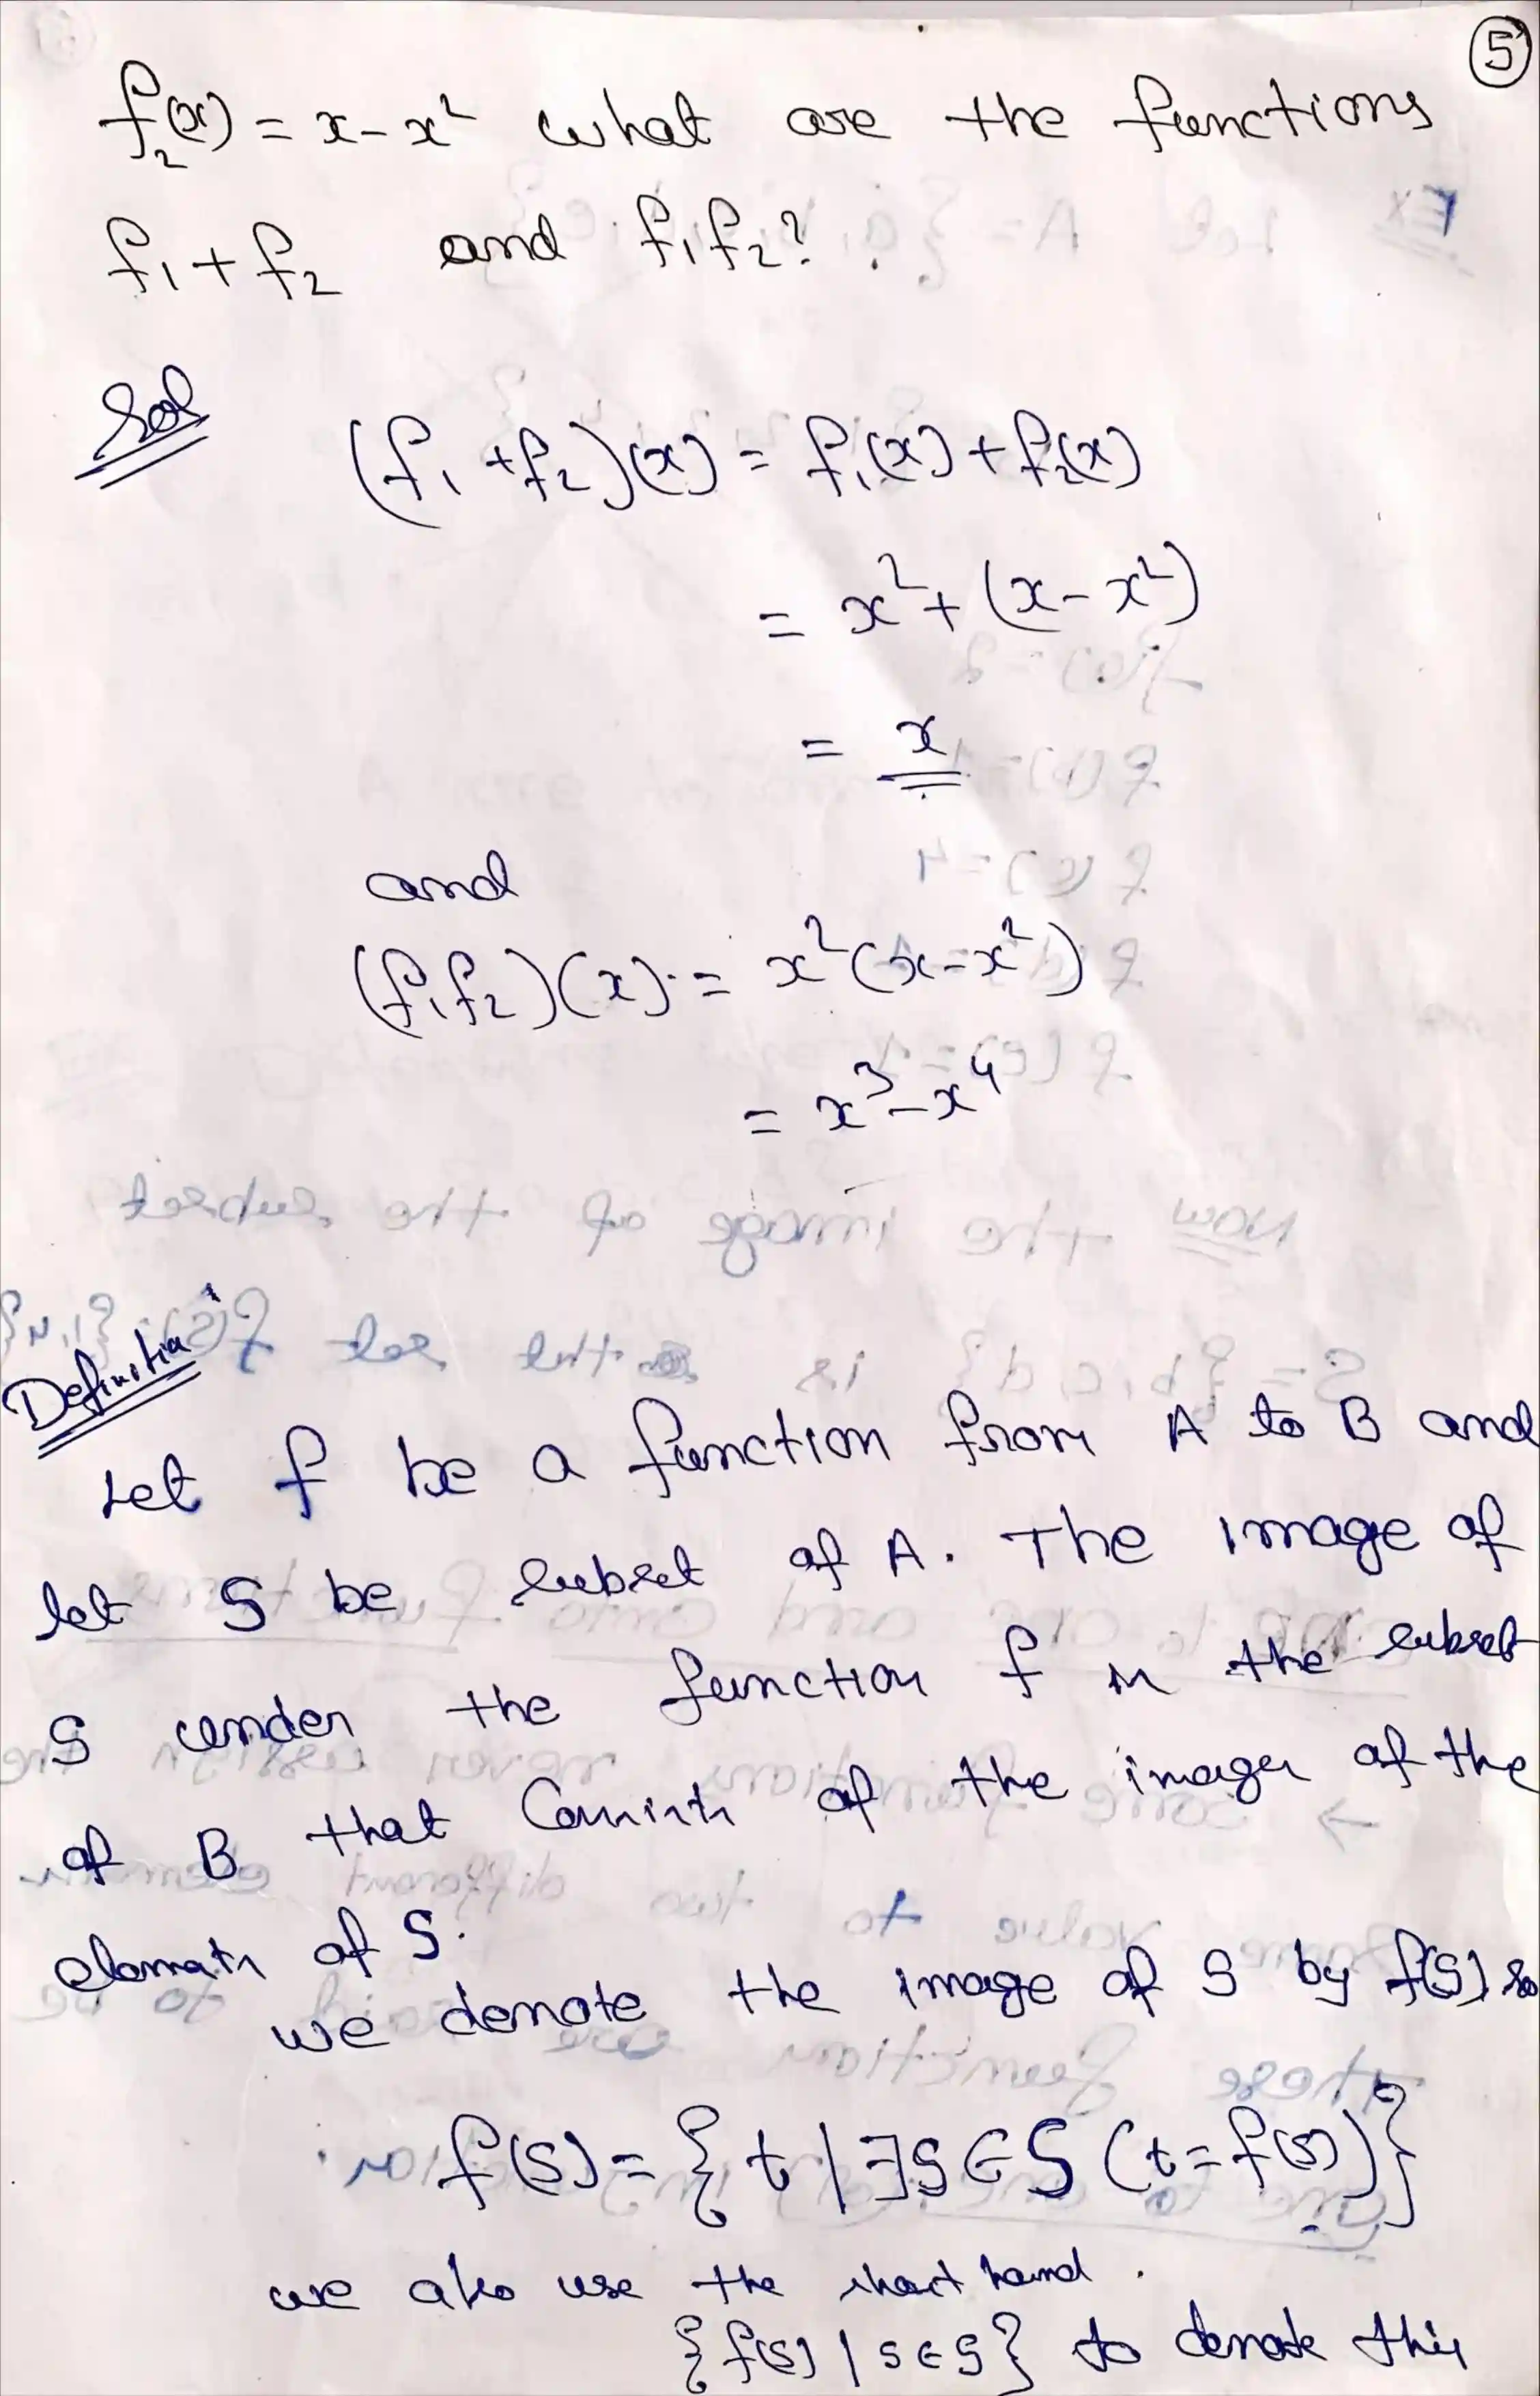 5
f₂(x) = x - x² what are the functions
f₁ + f₂ and f₁f₂?
Sol
(f₁ + f₂)(x) = f₁(x) + f₂(x)
= x² + (x - x²)
= x
and
(f₁f₂)(x) = x²(x - x²)
= x³ - x⁴
Definition
Let f be a function from A to B and
let S be subset of A. The image of
S under the function f is the subset
of B that consists of the images of the
elements of S.
we denote the image of S by f(S) so
f(S) = {t | ∃s ∈ S (t = f(s))}
we also use the short hand.
{f(s) | s ∈ S} to denote this